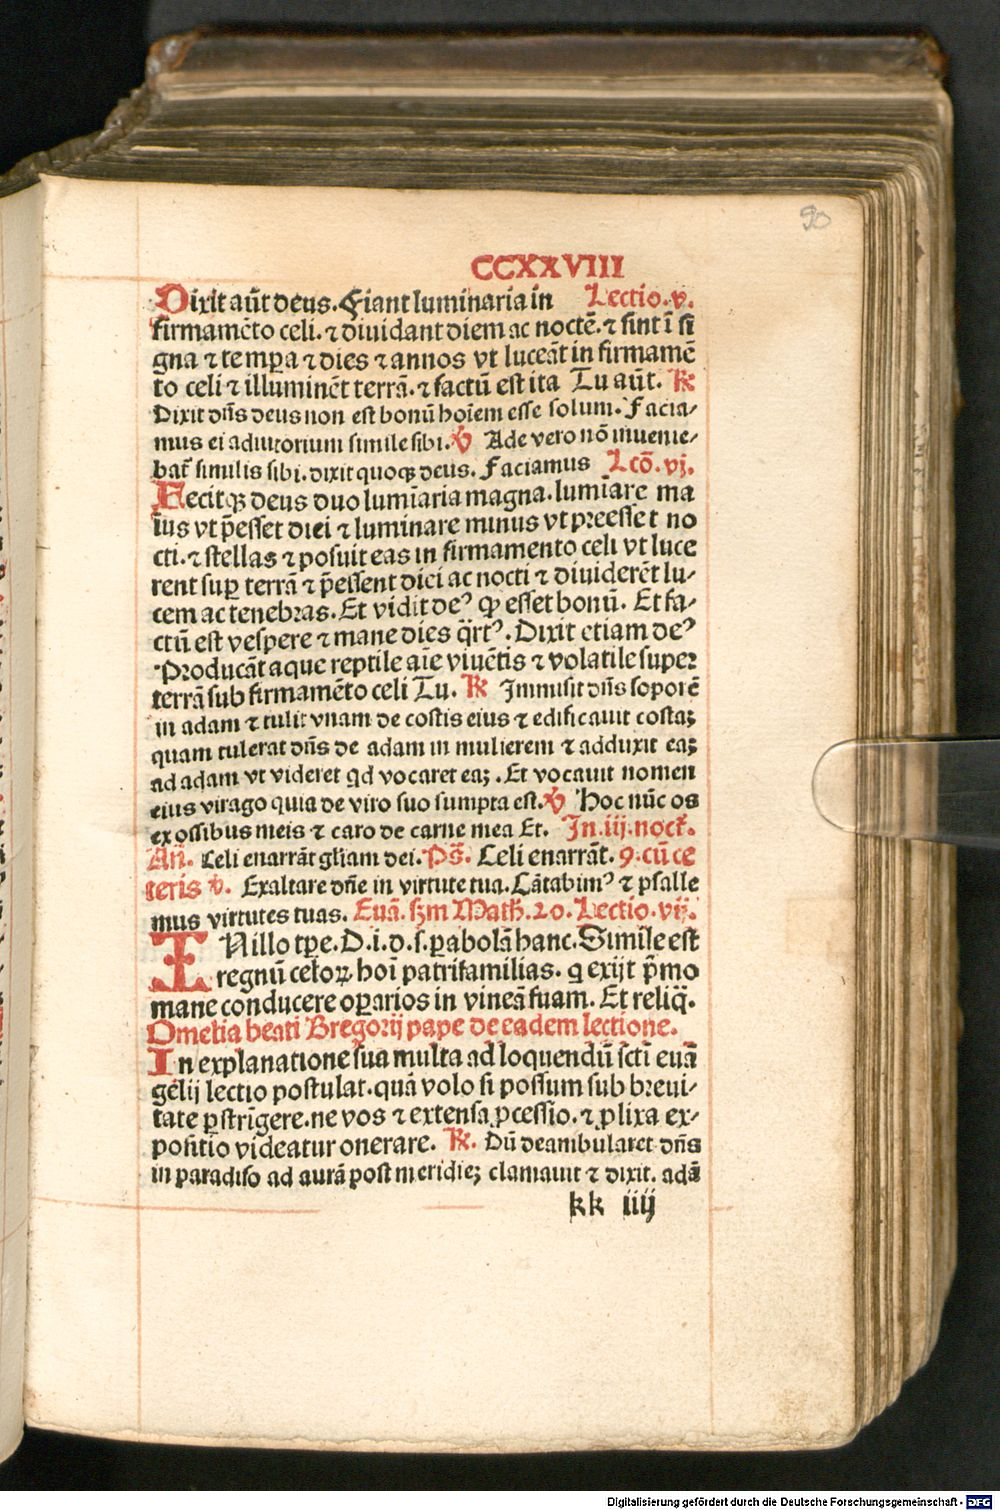 90
CCXXVIII
Dixit aūt deus. Fiant luminaria in Lectio. v.
firmamēto celi. ⁊ diuidant diem ac noctē. ⁊ sint ī si
gna ⁊ tempa ⁊ dies ⁊ annos vt luceāt in firmamē
to celi ⁊ illuminēt terrā. ⁊ factū est ita Tu aūt. ℟
Dixit dn̄s deus non est bonū hoīem esse solum. Facia-
mus ei adiutorium simile sibi. ℣ Ade vero nō inuenie-
bat̄ similis sibi. dixit quoqꝫ deus. Faciamus Lcō. vj.
Fecitqꝫ deus duo lumīaria magna. lumīare ma
ius vt p̄esset diei ⁊ luminare minus vt preesset no
cti. ⁊ stellas ⁊ posuit eas in firmamento celi vt luce
rent suꝑ terrā ⁊ p̄essent diei ac nocti ⁊ diuiderēt lu-
cem ac tenebras. Et vidit deꝰ ꝙ esset bonū. Et fa-
ctū est vespere ⁊ mane dies q̄rtꝰ. Dixit etiam deꝰ
Producāt aque reptile aīe viuētis ⁊ volatile super
terrā sub firmamēto celi Tu. ℟ Immisit dn̄s soporē
in adam ⁊ tulit vnam de costis eius ⁊ edificauit costaꝫ
quam tulerat dn̄s de adam in mulierem ⁊ adduxit eaꝫ
ad adam vt videret qd vocaret eaꝫ. Et vocauit nomen
eius virago quia de viro suo sumpta est. ℣ Hoc nūc os
ex ossibus meis ⁊ caro de carne mea Et. In. iij. noct̄.
An̄. Celi enarrāt gl̄iam dei. Ps̄. Celi enarrāt. ꝯ. cū ce
teris ℣. Exaltare dn̄e in virtute tua. Cātabimꝰ ⁊ psalle
mus virtutes tuas. Euā. scd̄m Math. 20. Lectio. vij.
IN illo tꝑe. D. i. d. s. ꝑabolā hanc. Simile est
regnū celoꝝ hoī patrifamilias. q exijt p̄mo
mane conducere oꝑarios in vineā suam. Et reliq̄.
Omelia beati Gregorij pape de eadem lectione.
In explanatione sua multa ad loquendū sctī euā
gelij lectio postulat. quā volo si possum sub breui-
tate ꝑstrīgere. ne vos ⁊ extensa ꝓcessio. ⁊ ꝓlixa ex-
positio videatur onerare. ℟. Dū deambularet dn̄s
in paradiso ad aurā post meridieꝫ clamauit ⁊ dixit. adā
kk iiij
Digitalisierung gefördert durch die Deutsche Forschungsgemeinschaft - DFG